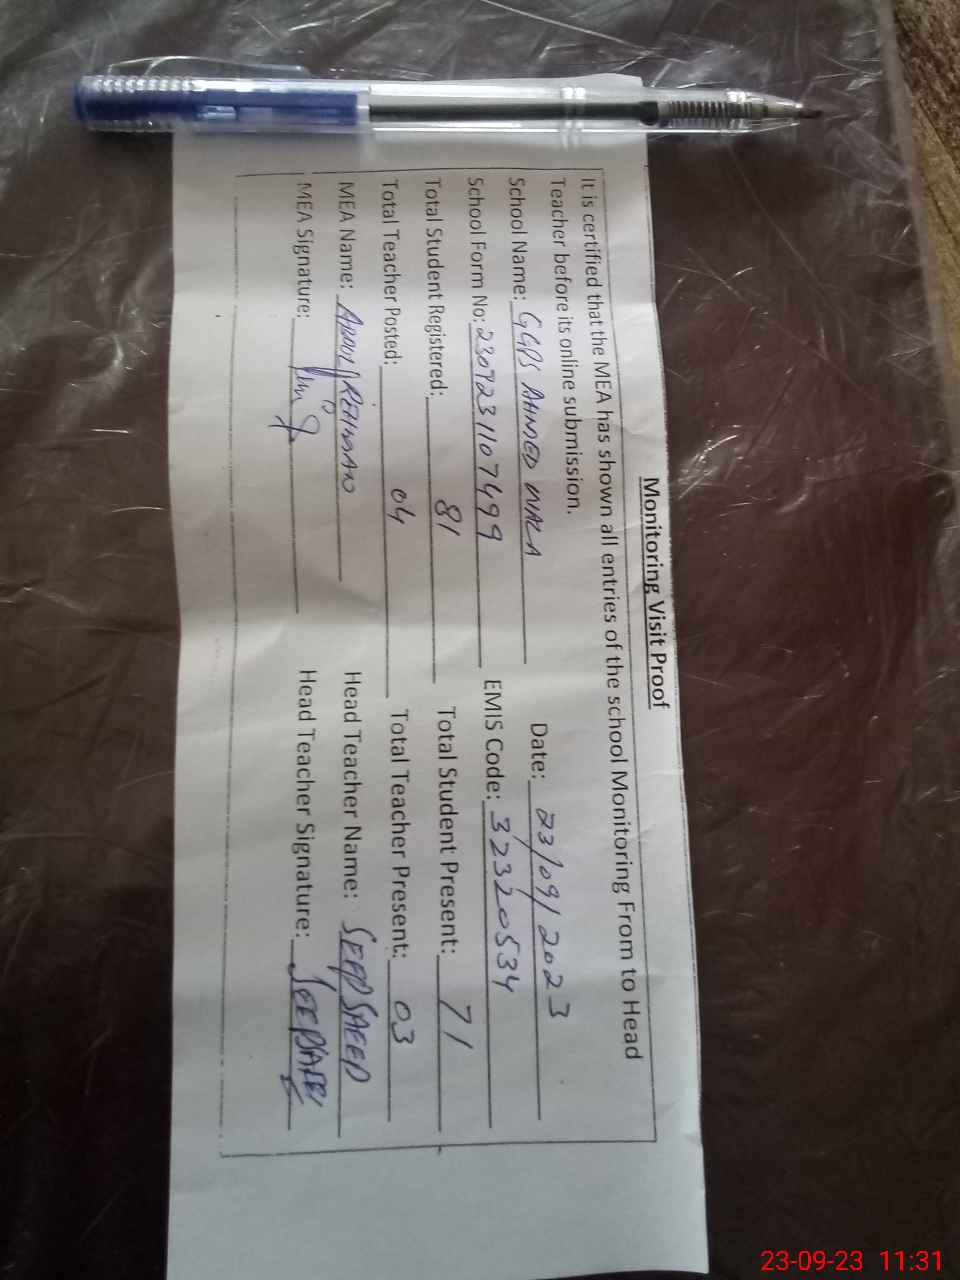 Monitoring Visit Proof
It is certified that the MEA has shown all entries of the school Monitoring From to Head
Teacher before its online submission.
School Name: GGPS AHMED WALA Date: 23/09/2023
School Form No: 2309231107499 EMIS Code: 32320534
Total Student Registered: 81 Total Student Present: 71
Total Teacher Posted: 04 Total Teacher Present: 03
MEA Name: ABDUL REHMAN Head Teacher Name: SEEP SAEED
MEA Signature: Head Teacher Signature:
23-09-23 11:31